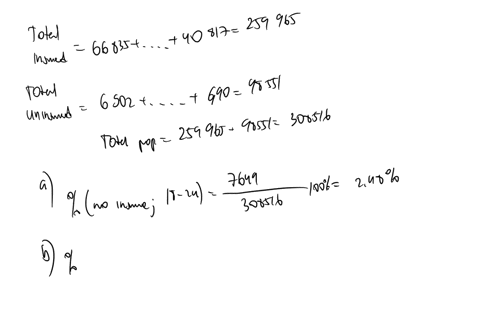 Total
insured = 66 835 + ..... + 40 817 = 259 965
Total
uninsured = 6 502 + ..... + 690 = 48551
Total pop = 259 965 + 48551 = 308516
a) % (no insurance; 18-24) = 7649 / 308516 · 100% = 2.48%
b) %